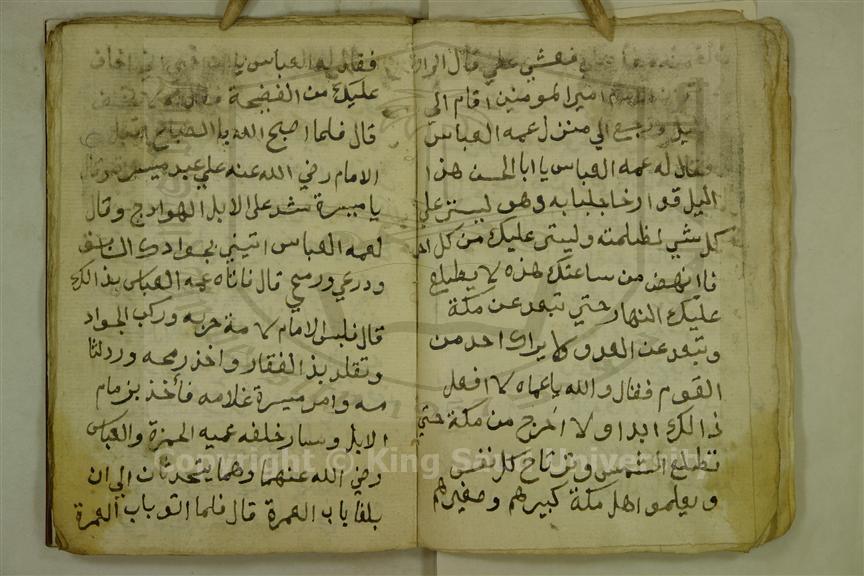 فغشي علي قال الراوي
امير المومنين اقام الي
ليل ورجع الي منزل عمه العباس
وقال له عمه العباس يا ابا الحسن هذا
الليل قد ارخا جلبابه وهو ليستر علي
كل شي لظلمته وليستر عليك من كل احد
فاانهض من ساعتك هذه لا يطلع
عليك النهار حتي تبعد عن مكة
وتبعد عن العدو لا يراك احد من
القوم فقال والله ياعماه لا افعل
ذالك ابدا ولا اخرج من مكة حتي
تطلع الشمس وترتاح كل نفس
ويعلمو اهل مكة كبيرهم وصغيرهم
فقال له العباس يا ابن اخي اني اخاف
عليك من الفضيحة فقال له لا تخف
قال فلما اصبح الله باالصباح اقبل
الامام رضي الله عنه علي عبد ميسرة وقال
يا ميسرة شد علي الابل الهوادج وقال
لعمه العباس اتيني بجوادي السابق
ودرعي ورمحي قال فاتاه عمه العباس بذالك
قال فلبس الامام لامة حربه وركب الجواد
وتقلد بذ الفقار واخذ رمحه وردلتا
مه وامر ميسرة غلامه فأخذ بزمام
الابل وسار خلفه عميه الحمزة والعباس
رضي الله عنهما وهما يتحدثان الي ان
بلغا باب العمرة قال فلما اتو باب العمرة
Copyright © King Saud University